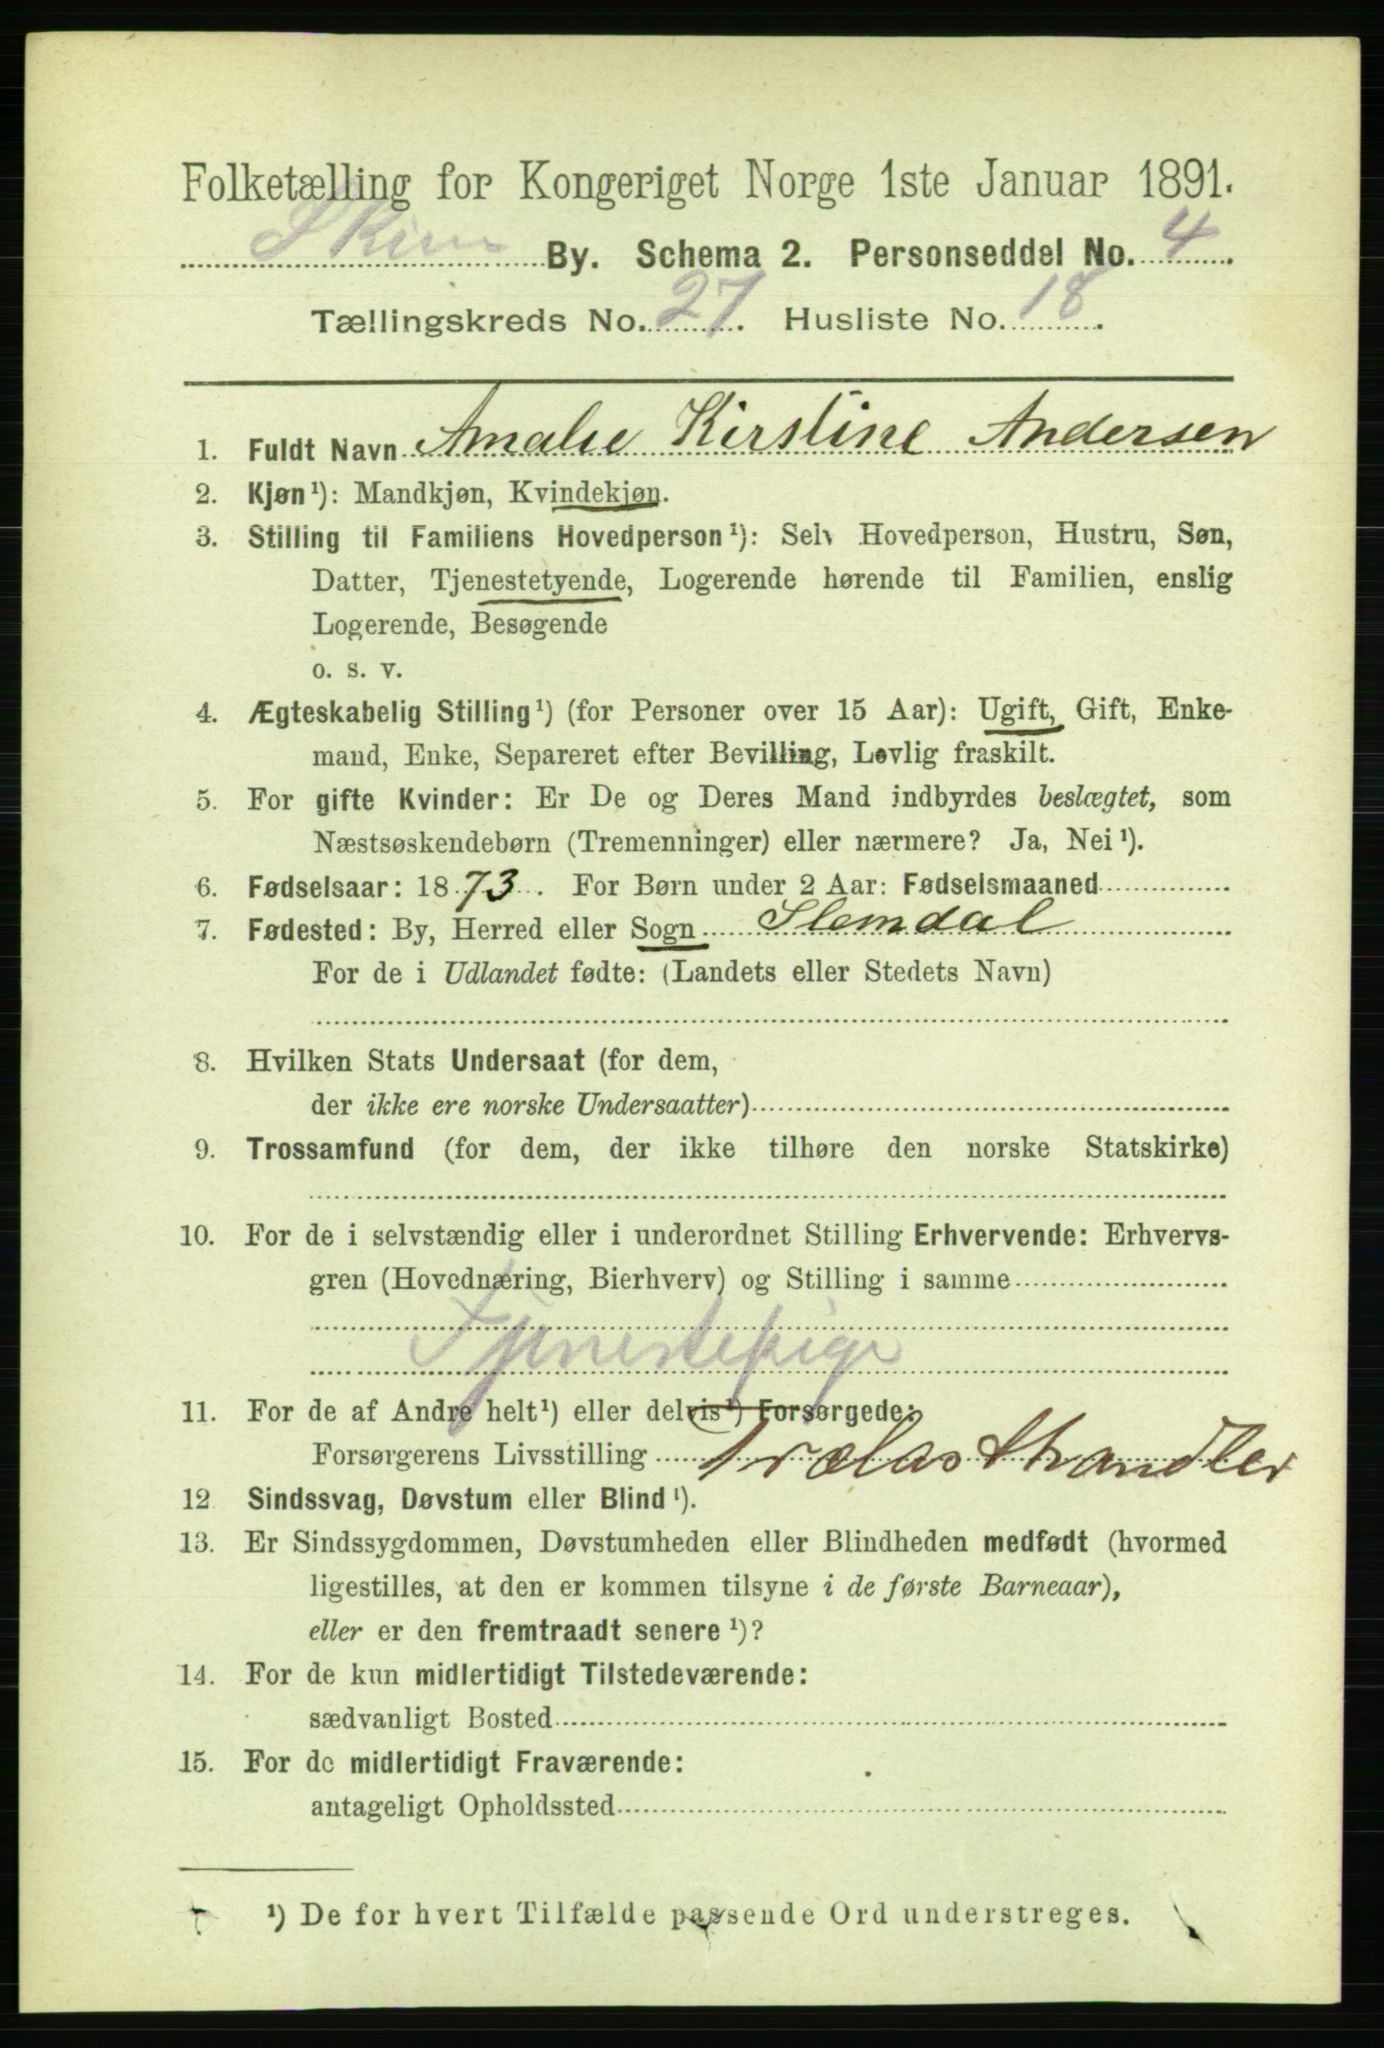 Folketælling for Kongeriget Norge 1ste Januar 1891.
Skien By. Schema 2. Personseddel No. 4
Tællingskreds No. 27. Husliste No. 18.
1. Fuldt Navn Amalie Kirstine Andersen
2. Kjøn¹): Mandkjøn, Kvindekjøn.
3. Stilling til Familiens Hovedperson¹): Selv Hovedperson, Hustru, Søn,
Datter, Tjenestetyende, Logerende hørende til Familien, enslig
Logerende, Besøgende
o. s. v.
4. Ægteskabelig Stilling¹) (for Personer over 15 Aar): Ugift, Gift, Enke-
mand, Enke, Separeret efter Bevilling, Lovlig fraskilt.
5. For gifte Kvinder: Er De og Deres Mand indbyrdes beslægtet, som
Næstsøskendebørn (Tremenninger) eller nærmere? Ja, Nei¹).
6. Fødselsaar: 1873. For Børn under 2 Aar: Fødselsmaaned
7. Fødested: By, Herred eller Sogn Slemdal
For de i Udlandet fødte: (Landets eller Stedets Navn)
8. Hvilken Stats Undersaat (for dem,
der ikke ere norske Undersaatter)
9. Trossamfund (for dem, der ikke tilhøre den norske Statskirke)
10. For de i selvstændig eller i underordnet Stilling Erhvervende: Erhvervs-
gren (Hovednæring, Bierhverv) og Stilling i samme
Tjenestepige
11. For de af Andre helt¹) eller delvis¹) Forsørgede:
Forsørgerens Livsstilling Trælasthandler
12 Sindssvag, Døvstum eller Blind¹).
13. Er Sindssygdommen, Døvstumheden eller Blindheden medfødt (hvormed
ligestilles, at den er kommen tilsyne i de første Barneaar),
eller er den fremtraadt senere¹)?
14. For de kun midlertidigt Tilstedeværende:
sædvanligt Bosted
15. For de midlertidigt Fraværende:
antageligt Opholdssted
¹) De for hvert Tilfælde passende Ord understreges.